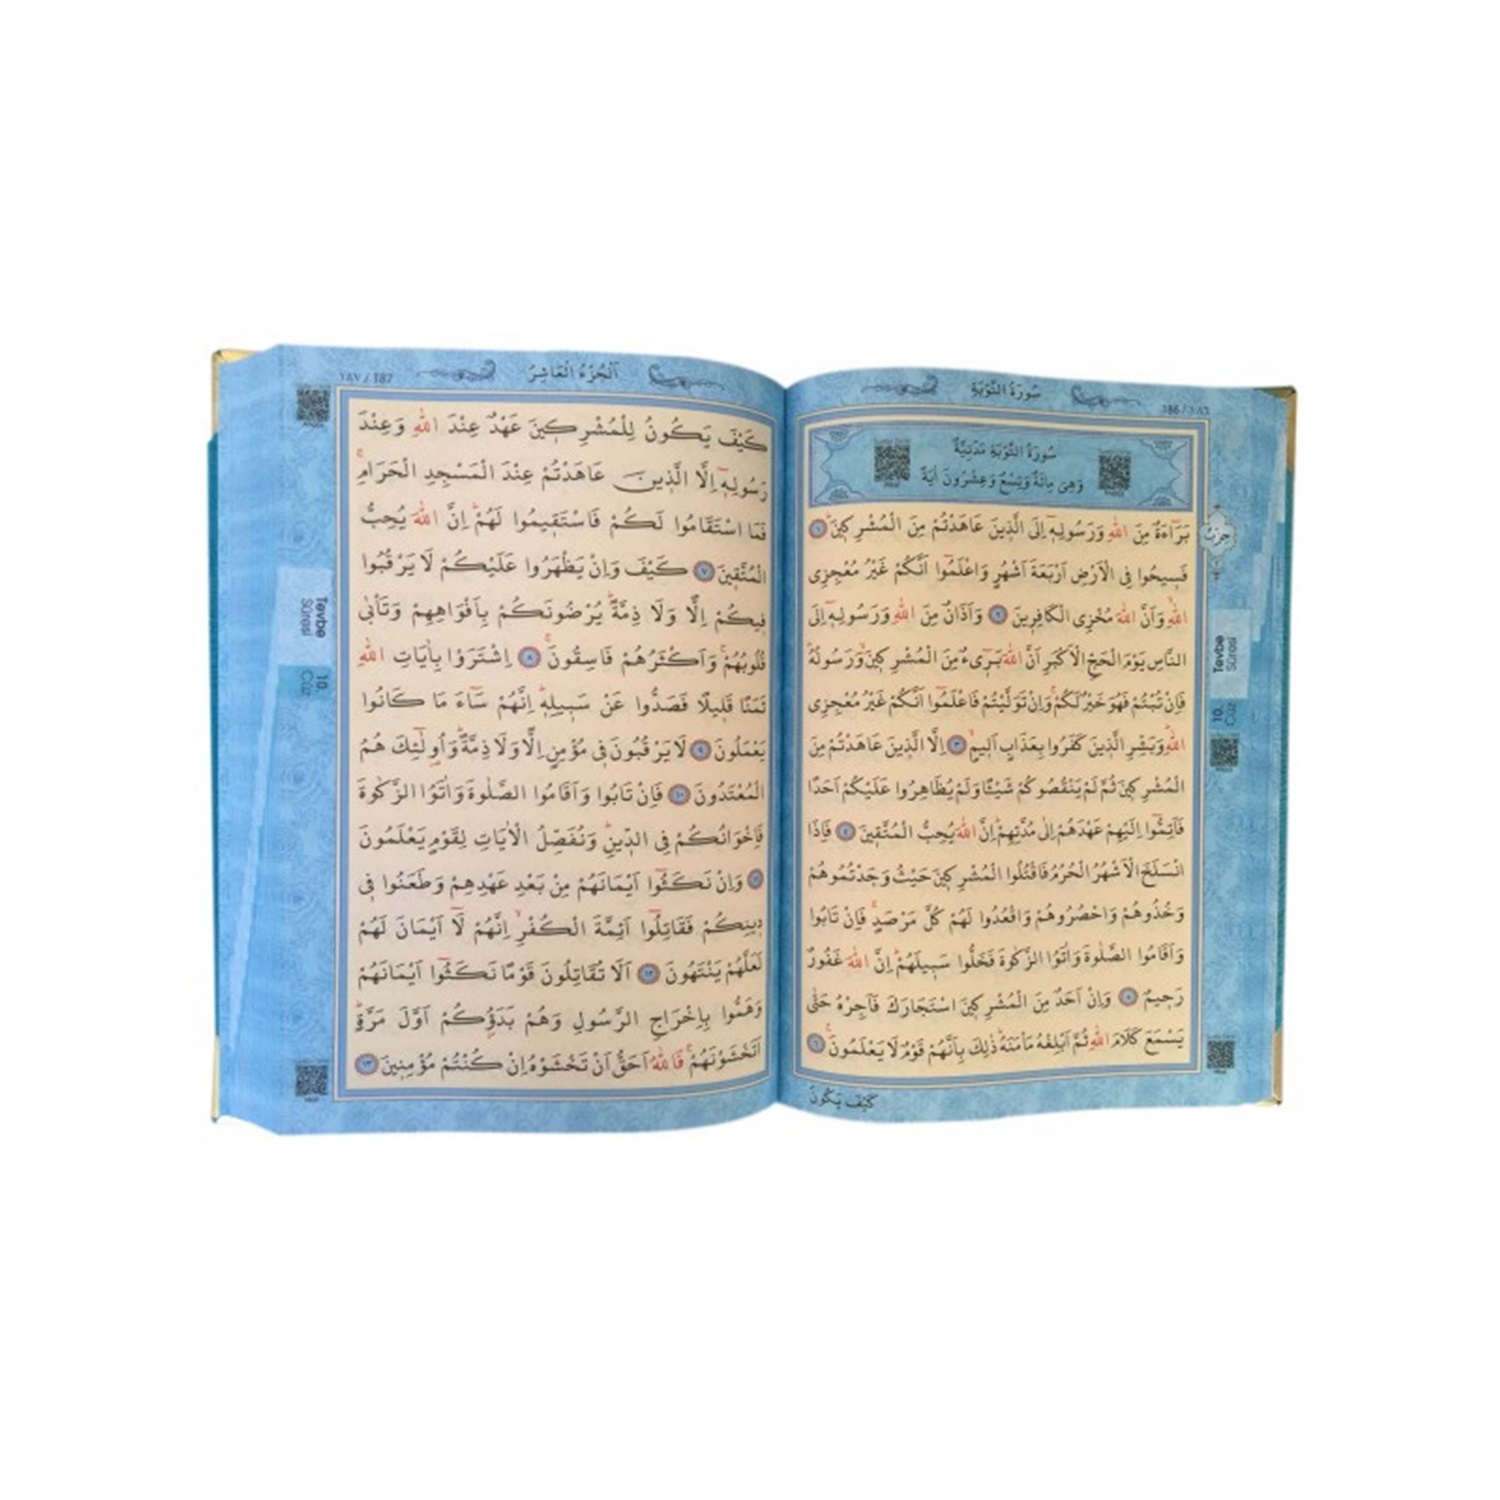 سُورَةُ التَّوْبَةِ
186 / ١٨٦
سُورَةُ التَّوْبَةِ مَدَنِيَّةٌ
وَهِىَ مِائَةٌ وَتِسْعٌ وَعِشْرُونَ اٰيَةً
بَرَٓاءَةٌ مِنَ اللّٰهِ وَرَسُولِه۪ٓ اِلَى الَّذ۪ينَ عَاهَدْتُمْ مِنَ الْمُشْرِك۪ينَۜ ﴿١﴾
فَس۪يحُوا فِي الْاَرْضِ اَرْبَعَةَ اَشْهُرٍ وَاعْلَمُٓوا اَنَّكُمْ غَيْرُ مُعْجِزِي
اللّٰهِۙ وَاَنَّ اللّٰهَ مُخْزِي الْكَافِر۪ينَ ﴿٢﴾ وَاَذَانٌ مِنَ اللّٰهِ وَرَسُولِه۪ٓ اِلَى
النَّاسِ يَوْمَ الْحَجِّ الْاَكْبَرِ اَنَّ اللّٰهَ بَر۪ٓيءٌ مِنَ الْمُشْرِك۪ينَۙ وَرَسُولُهُۜ
فَاِنْ تُبْتُمْ فَهُوَ خَيْرٌ لَكُمْۚ وَاِنْ تَوَلَّيْتُمْ فَاعْلَمُٓوا اَنَّكُمْ غَيْرُ مُعْجِزِي
اللّٰهِۜ وَبَشِّرِ الَّذ۪ينَ كَفَرُوا بِعَذَابٍ اَل۪يمٍۙ ﴿٣﴾ اِلَّا الَّذ۪ينَ عَاهَدْتُمْ مِنَ
الْمُشْرِك۪ينَ ثُمَّ لَمْ يَنْقُصُوكُمْ شَيْـًٔا وَلَمْ يُظَاهِرُوا عَلَيْكُمْ اَحَدًا
فَاَتِمُّٓوا اِلَيْهِمْ عَهْدَهُمْ اِلٰى مُدَّتِهِمْۜ اِنَّ اللّٰهَ يُحِبُّ الْمُتَّق۪ينَ ﴿٤﴾ فَاِذَا
انْسَلَخَ الْاَشْهُرُ الْحُرُمُ فَاقْتُلُوا الْمُشْرِك۪ينَ حَيْثُ وَجَدْتُمُوهُمْ
وَخُذُوهُمْ وَاحْصُرُوهُمْ وَاقْعُدُوا لَهُمْ كُلَّ مَرْصَدٍۚ فَاِنْ تَابُوا
وَاَقَامُوا الصَّلٰوةَ وَاٰتَوُا الزَّكٰوةَ فَخَلُّوا سَب۪يلَهُمْۜ اِنَّ اللّٰهَ غَفُورٌ
رَح۪يمٌ ﴿٥﴾ وَاِنْ اَحَدٌ مِنَ الْمُشْرِك۪ينَ اسْتَجَارَكَ فَاَجِرْهُ حَتّٰى
يَسْمَعَ كَلَامَ اللّٰهِ ثُمَّ اَبْلِغْهُ مَأْمَنَهُۜ ذٰلِكَ بِاَنَّهُمْ قَوْمٌ لَا يَعْلَمُونَ۟ ﴿٦﴾
كَيْفَ يَكُونُ
حزب
Tevbe
Sûresi
10.
Cüz
اَلْجُزْءُ الْعَاشِرُ
١٨٧ / 187
كَيْفَ يَكُونُ لِلْمُشْرِك۪ينَ عَهْدٌ عِنْدَ اللّٰهِ وَعِنْدَ
رَسُولِه۪ٓ اِلَّا الَّذ۪ينَ عَاهَدْتُمْ عِنْدَ الْمَسْجِدِ الْحَرَامِۚ
فَمَا اسْتَقَامُوا لَكُمْ فَاسْتَق۪يمُوا لَهُمْۜ اِنَّ اللّٰهَ يُحِبُّ
الْمُتَّق۪ينَ ﴿٧﴾ كَيْفَ وَاِنْ يَظْهَرُوا عَلَيْكُمْ لَا يَرْقُبُوا
ف۪يكُمْ اِلًّا وَلَا ذِمَّةًۜ يُرْضُونَكُمْ بِاَفْوَاهِهِمْ وَتَأْبٰى
قُلُوبُهُمْۚ وَاَكْثَرُهُمْ فَاسِقُونَۚ ﴿٨﴾ اِشْتَرَوْا بِاٰيَاتِ اللّٰهِ
ثَمَنًا قَل۪يلًا فَصَدُّوا عَنْ سَب۪يلِه۪ۜ اِنَّهُمْ سَٓاءَ مَا كَانُوا
يَعْمَلُونَ ﴿٩﴾ لَا يَرْقُبُونَ ف۪ي مُؤْمِنٍ اِلًّا وَلَا ذِمَّةًۜ وَاُو۬لٰٓئِكَ هُمُ
الْمُعْتَدُونَ ﴿١٠﴾ فَاِنْ تَابُوا وَاَقَامُوا الصَّلٰوةَ وَاٰتَوُا الزَّكٰوةَ
فَاِخْوَانُكُمْ فِي الدّ۪ينِۜ وَنُفَصِّلُ الْاٰيَاتِ لِقَوْمٍ يَعْلَمُونَ
﴿١١﴾ وَاِنْ نَكَثُٓوا اَيْمَانَهُمْ مِنْ بَعْدِ عَهْدِهِمْ وَطَعَنُوا ف۪ي
د۪ينِكُمْ فَقَاتِلُٓوا اَئِمَّةَ الْكُفْرِۙ اِنَّهُمْ لَٓا اَيْمَانَ لَهُمْ
لَعَلَّهُمْ يَنْتَهُونَ ﴿١٢﴾ اَلَا تُقَاتِلُونَ قَوْمًا نَكَثُٓوا اَيْمَانَهُمْ
وَهَمُّوا بِاِخْرَاجِ الرَّسُولِ وَهُمْ بَدَؤُ۫كُمْ اَوَّلَ مَرَّةٍۜ
اَتَخْشَوْنَهُمْۚ فَاللّٰهُ اَحَقُّ اَنْ تَخْشَوْهُ اِنْ كُنْتُمْ مُؤْمِن۪ينَ ﴿١٣﴾
Tevbe
Sûresi
10.
Cüz